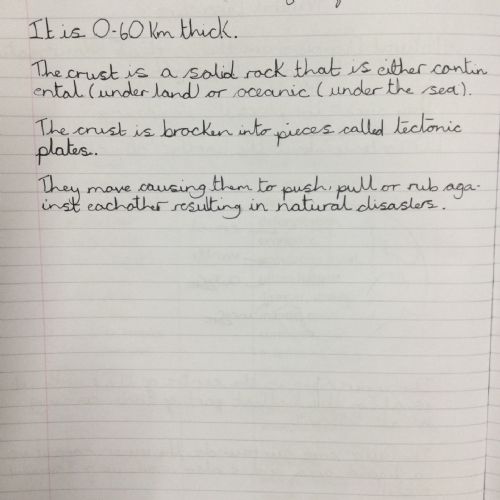 It is 0-60 Km thick.
The crust is a solid rock that is either contin
ental (under land) or oceanic (under the sea).
The crust is brocken into pieces called tectonic
plates.
They move causing them to push, pull or rub aga-
inst eachother resulting in natural disasters.